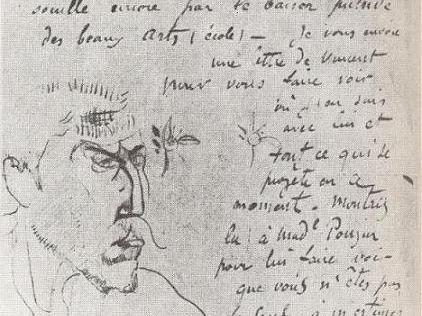 souillé encore par le baiser putride
des beaux arts (école) — Je vous envoie
une lettre de Vincent
pour vous faire voir
où j'en suis
avec lui et
tout ce qui se
projète en ce
moment. Montrez
la à Mad<sup>e</sup>
pour lui faire voir
que vous n'êtes pas
le seul à m'estimer